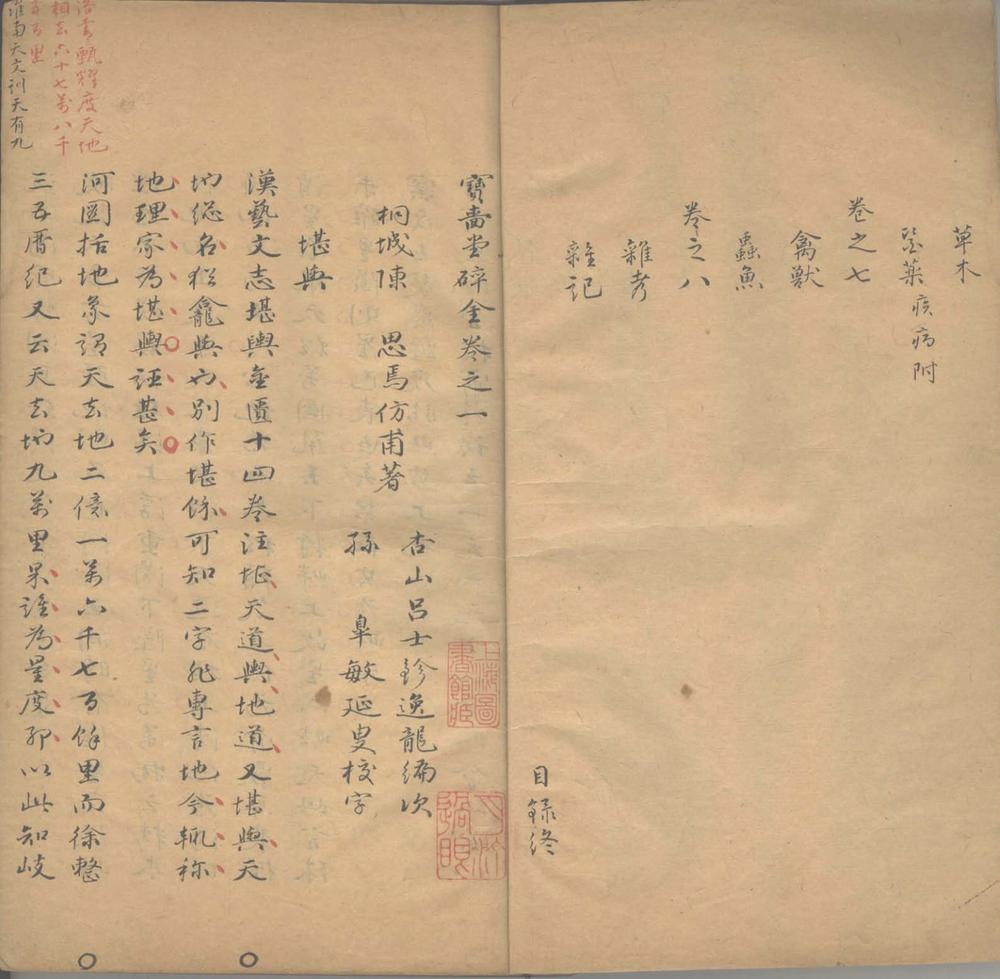 草木
醫藥疾病附
卷之七
禽獸
蟲魚
卷之八
雜考
雜記
目録終
寶嗇堂碎金卷之一
桐城陳 思馬仿甫著
杏山呂士鉁逸龍編次
孫 臯敏延叟校字
堪輿
漢藝文志堪輿金匱十四卷注堪天道輿地道又堪輿天
地総名猶龕輿也別作堪餘可知二字非專言地今輒称
地理家為堪輿誣甚矣
河圖括地象謂天去地二億一萬六千七百餘里而徐整
三五厯紀又云天去地九萬里果誰為量度耶以此知岐
洛書甄耀度天地
相去六十七萬八千
五百里
淮南天文訓天有九
上海圖書館藏